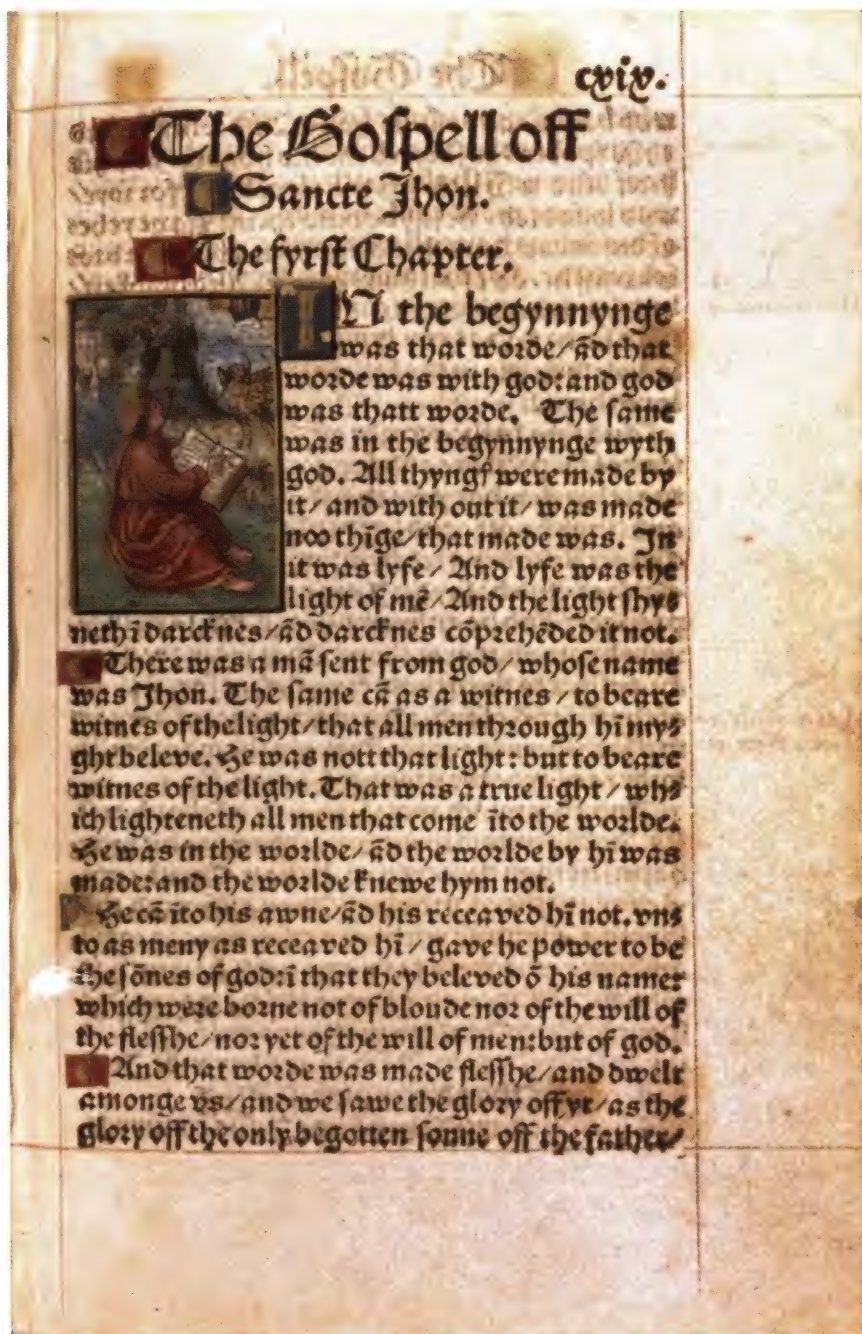 cxix.
The Gospell off
Sancte Jhon.
The fyrst Chapter.
IN the begynnynge
was that worde/ ãd that
worde was with god: and god
was thatt worde. The same
was in the begynnynge wyth
god. All thyngꝭ were made by
it/ and with out it/ was made
noo thīge/ that made was. In
it was lyfe/ And lyfe was the
light of mẽ/ And the light shy⸗
neth ī darcknes/ ãd darcknes cõprehẽded it not.
There was a mã sent from god/ whose name
was Jhon. The same cã as a witnes/ to beare
witnes of the light/ that all men through hī my⸗
ght beleve. He was nott that light: but to beare
witnes of the light. That was a true light/ wh⸗
ich lighteneth all men that come īto the worlde.
He was in the worlde/ ãd the worlde by hī was
made: and the worlde knewe hym not.
He cã īto his awne/ ãd his receaved hī not. vn⸗
to as meny as receaved hī/ gave he power to be
the sõnes of god: ī that they beleved õ his name:
which were borne not of bloude nor of the will of
the flesshe/ nor yet of the will of men: but of god.
And that worde was made flesshe/ and dwelt
amonge vs/ and we sawe the glory off yt/ as the
glory off the only begotten sonne off the father/